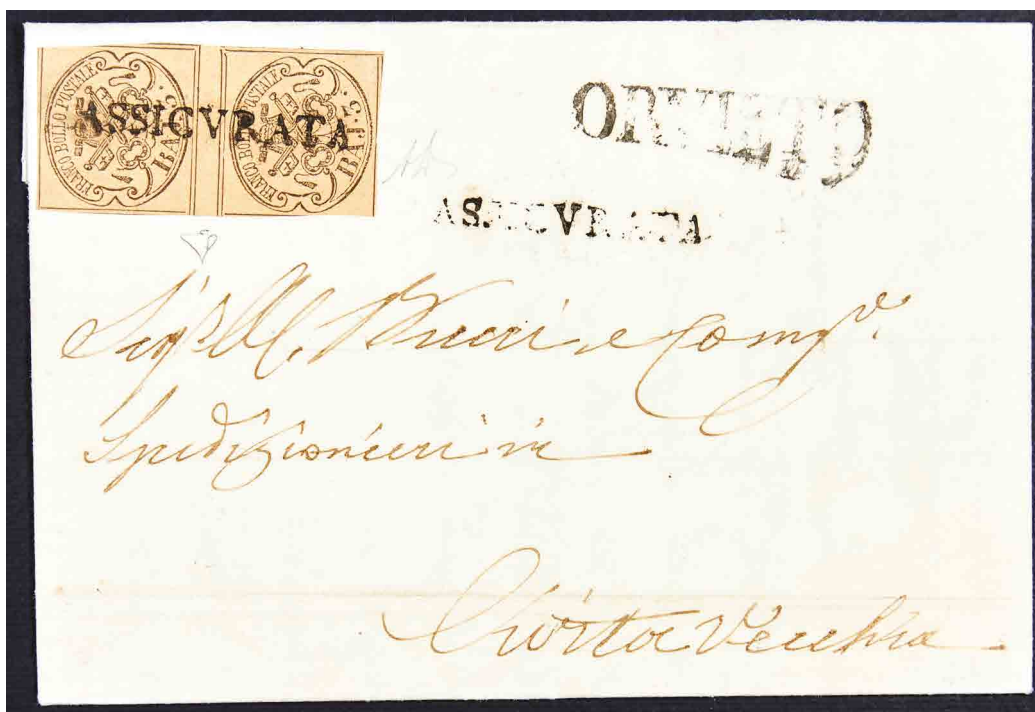 FRANCO BOLLO POSTALE
BAJ. 5
FRANCO BOLLO POSTALE
BAJ. 5
ASSICVRATA
ORVIETO
ASSICVRATA
e Comp.
Spedizionieri in
Civita Vecchia